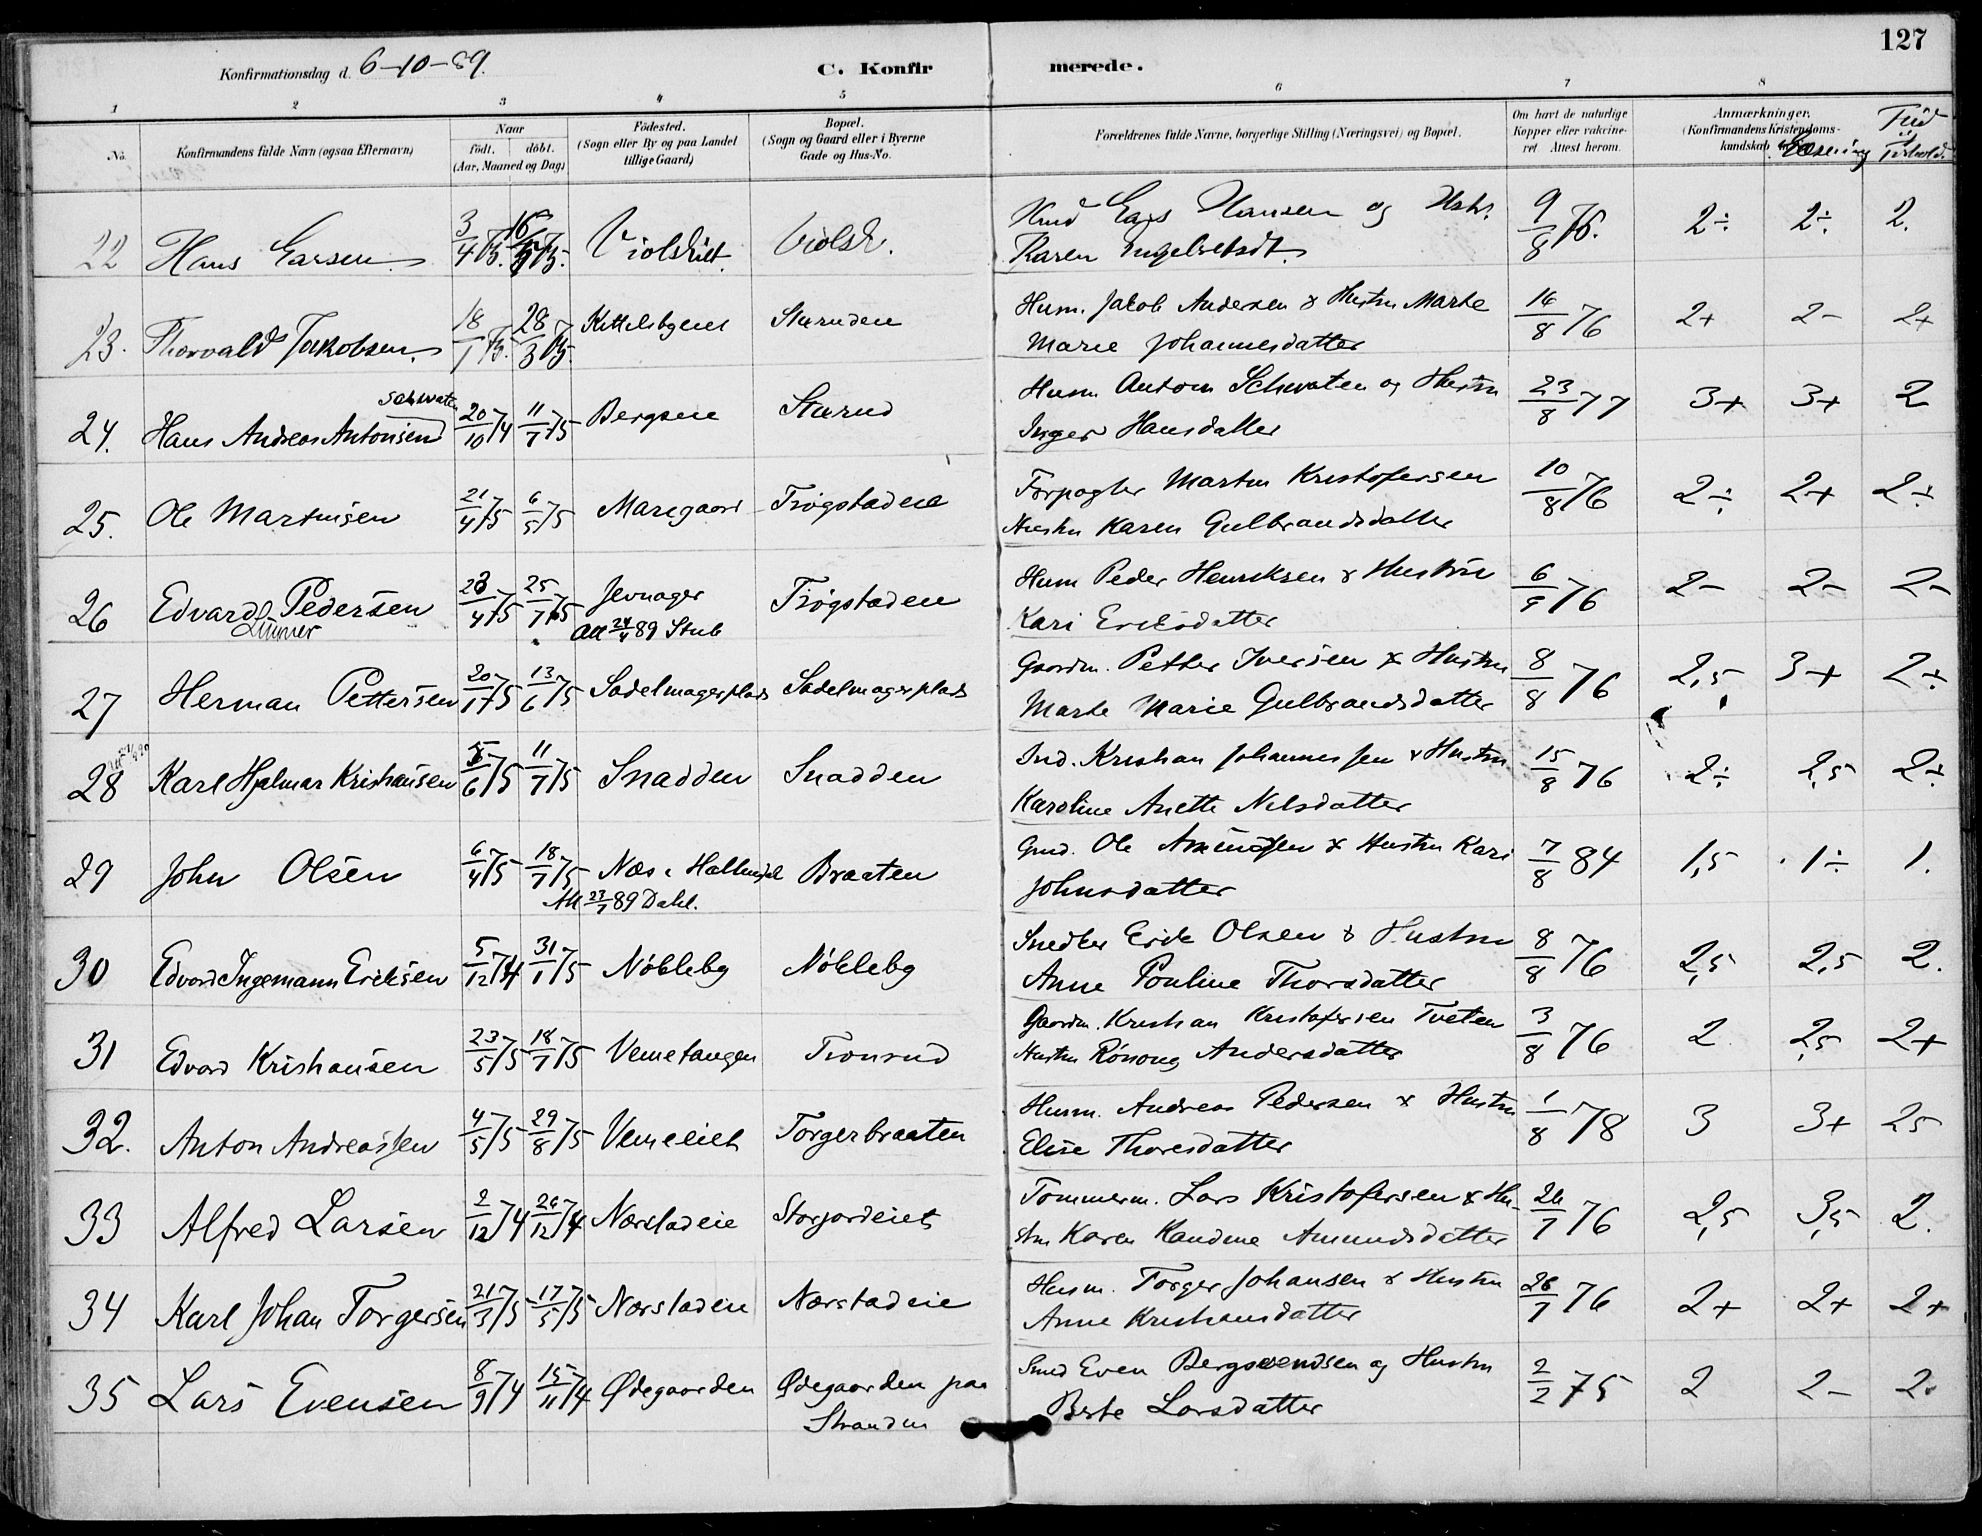 127
Konfirmationsdag d. 6-10-89.
C. Konfirmerede.
1 2 3 4 5 6 7 8
No.
Konfirmandens fulde Navn (ogsaa Efternavn)
Naar
født. døbt.
(Aar, Maaned og Dag)
Fødested.
(Sogn eller By og paa Landet
tillige Gaard)
Bopæl.
(Sogn og Gaard eller i Byerne
Gade og Hus-No.
Forældrenes fulde Navne, borgerlige Stilling (Næringsvei) og Bopæl.
Om havt de naturlige
Kopper eller vakcine-
ret Attest herom.
Anmærkninger.
(Konfirmandens Kristendoms-
kundskab
Flid
22 Hans Larsen 3/4 75. Lars Hansen og
Karen 9/8 76. 2÷ 2÷ 2.
23. Thorvald Jakobsen 18/1 75. 28/3 75. Sturuden Husm. Jakob Andersen & Hustru Marte
Marie Johannesdatter 16/8 76 2+ 2- 2+
Schwaten
24. Hans Andreas Antonsen 20/10 74 11/7 75 Bergseie Sturud Husm Anton Schwaten og Hustru
Inger Hansdatter 23/8 77 3+ 3+ 2
25. Ole Martinsen 21/4 75 6/5 75 Maregaard Trøgstadeie Forpagter Martin Kristofersen
Hustru Karen Gulbrandsdatter 10/8 76 2÷ 2+ 2÷
26 Edvard Pedersen 23/4 75 25/7 75 Jevnager Trøgstadeie Husm Peder Henriksen & Hustru
Linner Att 24/4 89 Stub Kari Eriksdatter 6/9 76 2- 2- 2-
27 Herman Pettersen 20/1 75 13/6 75 Sadelmagerplads Sadelmagerplads Gaardm. Petter Iversen & Hustru
Marte Marie Gulbrandsdatter 8/8 76 2,5 3+ 2÷
28 Karl Hjalmar Kristiansen 5/6 75 11/7 75 Snadden Snadden Ind. Kristian Johannessen & Hustru
Karoline Anette Nilsdatter 15/8 76 2÷ 2,5 2÷
29 John Olsen 6/4 75 18/7 75 Næs i Hallingdal Braaten Ole Amundsen & Hustru Kari
Att 23/7 89 Dahl. Johnsdatter 7/8 84 1,5 1÷ 1.
30 Edvard Ingemann Eriksen 5/12 74 31/1 75 Nøkleby Nøkleby Snedker Erik Olsen & Hustru
Anne Pouline Thorsdatter 8/8 76 2,5 2,5 2.
31 Edvard Kristiansen 23/5 75 18/7 75 Vemetangen Tronrud Gaardm. Kristian Kristofersen Tveten
Hustru Rønnoug Andersdatter 3/8 76 2 2,5 2+
32. Anton Andreassen 4/5 75 29/8 75 Vemeeiet Torgerbraaten Husm. Andreas Pedersen & Hustru
Elise Thoresdatter 1/8 78 3 3+ 25
33 Alfred Larsen 2/12 74 26/12 74 Nærstadeie Storjordeiet Tømmerm. Lars Kristofersen & Hu-
stru Karen Kandine Amundsdatter 26/7 76 2,5 3,5 2.
34 Karl Johan Torgersen 21/3 75 17/5 75 Nærstadeie Nærstadeie Husm. Torger Johansen & Hustru
Anne Kristiansdatter 28/7 76 2+ 2+ 2+
35 Lars Evensen 8/9 74 15/11 74 Ødegaarden Ødegaarden paa
Stranden Smed Even Bergsvendsen og Hustru
Berte Larsdatter 2/2 75 2 2- 2.